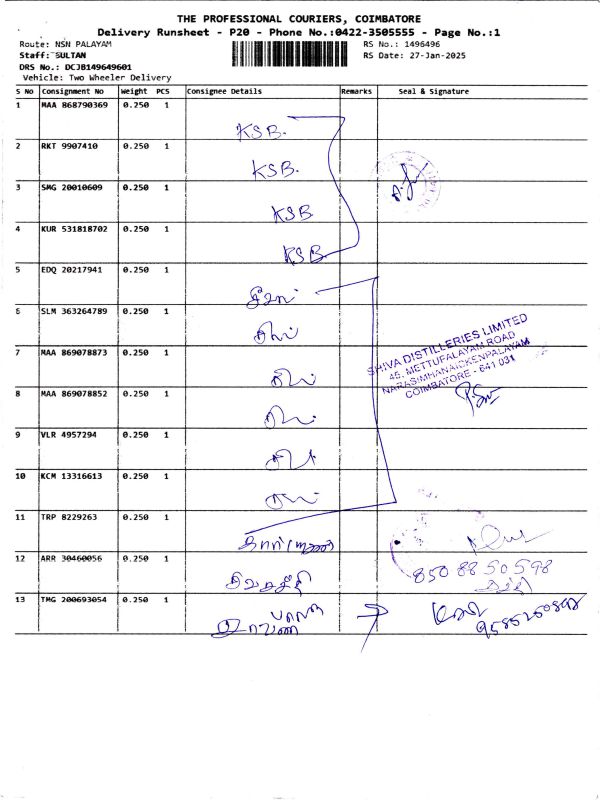 THE PROFESSIONAL COURIERS, COIMBATORE
Delivery Runsheet - P20 - Phone No.:0422-3505555 - Page No.:1
Route: NSN PALAYAM
RS No.: 1496496
Staff: SULTAN
RS Date: 27-Jan-2025
DRS No.: DCJB149649601
Vehicle: Two Wheeler Delivery
S No Consignment No Weight PCS Consignee Details Remarks Seal & Signature
1 MAA 868790369 0.250 1
KSB.
2 RKT 9907410 0.250 1
KSB.
3 SMG 20010609 0.250 1
KSB
4 KUR 531818702 0.250 1
KSB
5 EDQ 20217941 0.250 1
6 SLM 363264789 0.250 1
7 MAA 869078873 0.250 1
SHIVA DISTILLERIES LIMITED
45, METTUPALAYAM ROAD
NARASIMHANAICKENPALAYAM
COIMBATORE - 641 031
8 MAA 869078852 0.250 1
9 VLR 4957294 0.250 1
10 KCM 13316613 0.250 1
11 TRP 8229263 0.250 1
12 ARR 30460056 0.250 1
8508850598
13 TMG 200693054 0.250 1